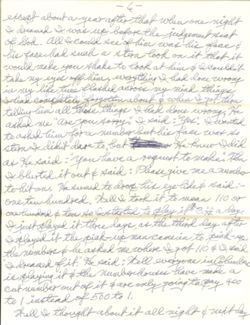 - 6 -
except about a year after that when one night
I dreamed I was up before the judgement seat
of God. All I could see of him was his face &
his face had such a stern look on it that it
would make you shake to look at him & I couldn't
take my eyes off him, everything I had done wrong
in my life time flashed across my mind things
I had completely forgotten about & when I got thru
telling him all these things I had done wrong, he
asked me are you sorry. I said: Yes, I wanted
to ask him for a number but his face was so
stern I didn't dare to, but He knew I did
as He said: You have a request to make: Then
I blurted it out & said: Please give me a number
to hit on. He seemed to drop his eyes & said:
one hundred. Well I took it to mean 110 or
one hundred & ten so I started to play it a day
I just played it three days as the third day after
I played it the pick-up man came in to pick up
the numbers & he asked me where I got 110 & I said
I dreamed of it. He said: Well everyone in Columbus
is playing it & the number houses have make a
cut number out of it & are only going to pay 400
to 1 instead of 500 to 1.
Well I thought about it all night & just